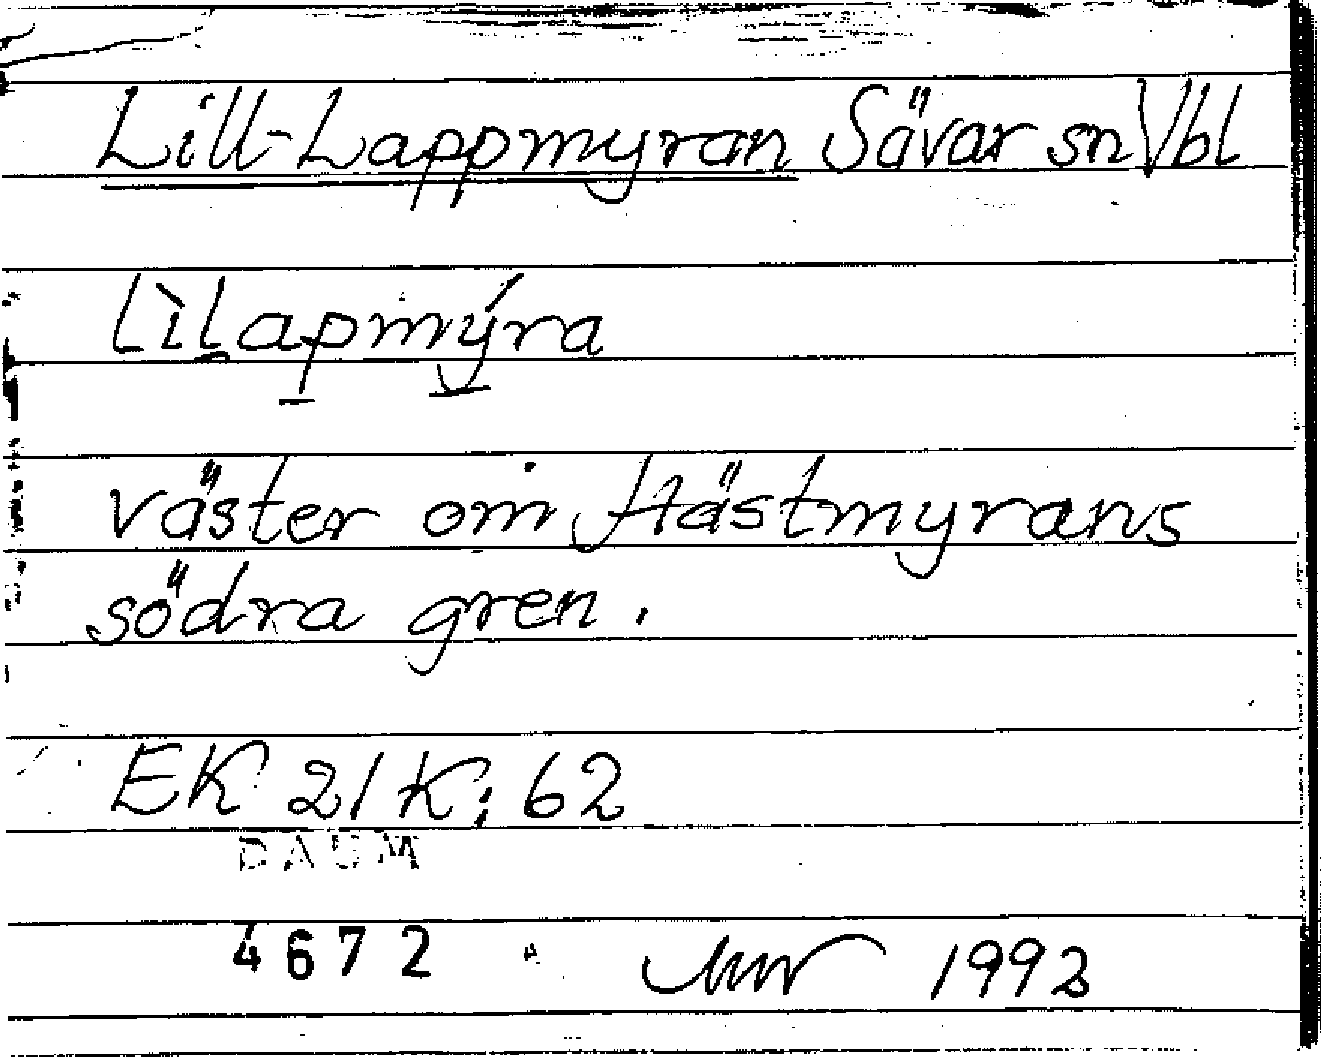 Lill-Lappmyran Sävar sn Vbl
Lìlapmýra
väster om Hästmyrans
södra gren.
EK 21K; 62
DAUM
4672
1992